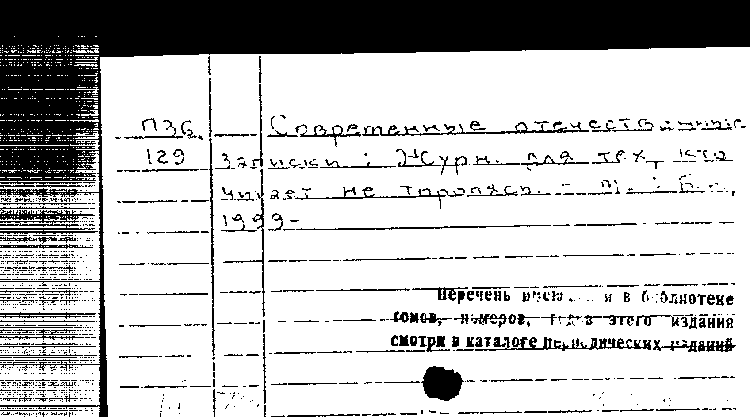 П36. Современные отечественные
129 записки : Журн. для тех, кто
читает не торопясь. – М. : Б.и.,
1999–
Перечень имею я в библиотеке
томов, номеров, годов этого издания
смотри в каталоге периодических изданий